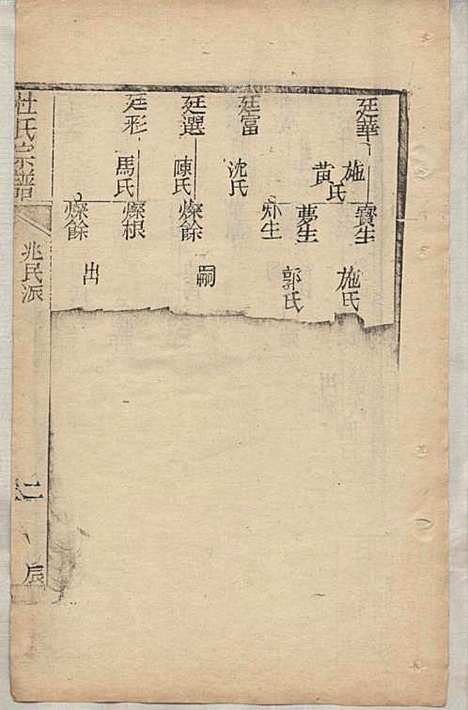 廷華
施氏
黃氏
寶生
施氏
夢生
郭氏
生
廷富
沈氏
廷選
陳氏
燦餘
嗣
廷彩
馬氏
燦根
燦餘
出
杜氏宗譜
兆民派
二
辰